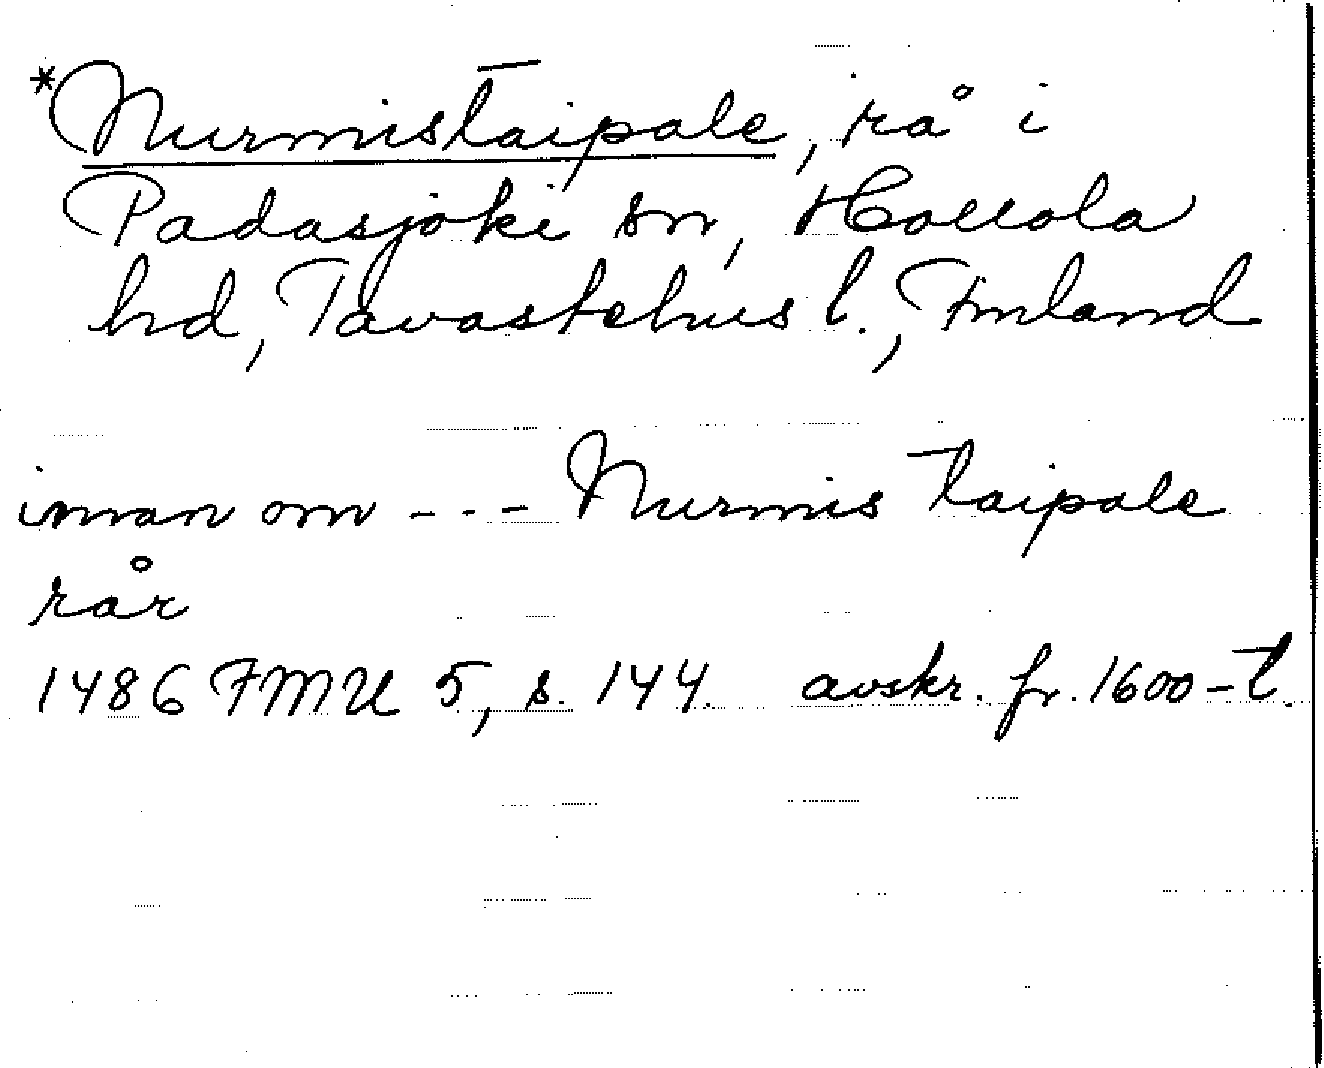 *Nurmistaipale, rå i
Padasjoki sn, Hollola
hd, Tavastehus l., Finland
innan om --- Nurmis taipale
rår
1486 FMU 5, s. 144. avskr. fr. 1600-t.